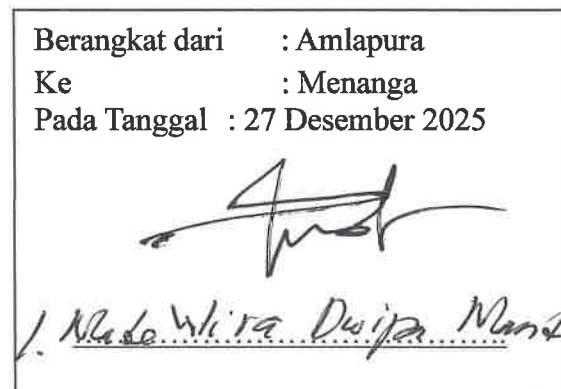 Berangkat dari : Amlapura
Ke : Menanga
Pada Tanggal : 27 Desember 2025
I. Made Wira Dwipa